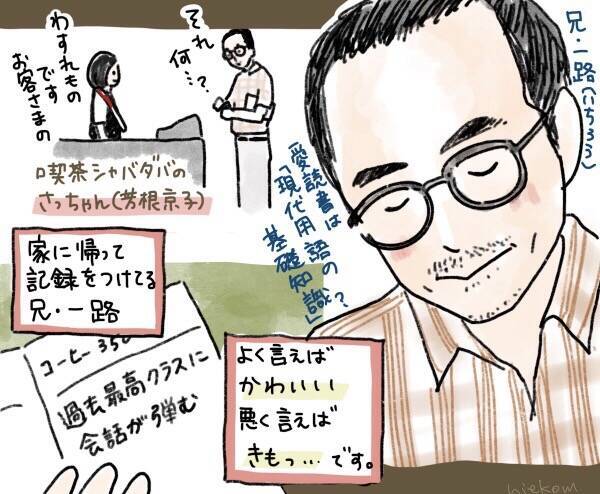 兄・一路(いちろう)
それ
何…?
わすれもの
です
お客さまの
喫茶シャバダバの
さっちゃん(芳根京子)
愛読書は
「現代用語の
基礎知識」?
家に帰って
記録をつけてる
兄・一路
コーヒー 350
過去最高クラスに
会話が弾む
よく言えば
かわいい
悪く言えば
きもっ…です。
niekom.